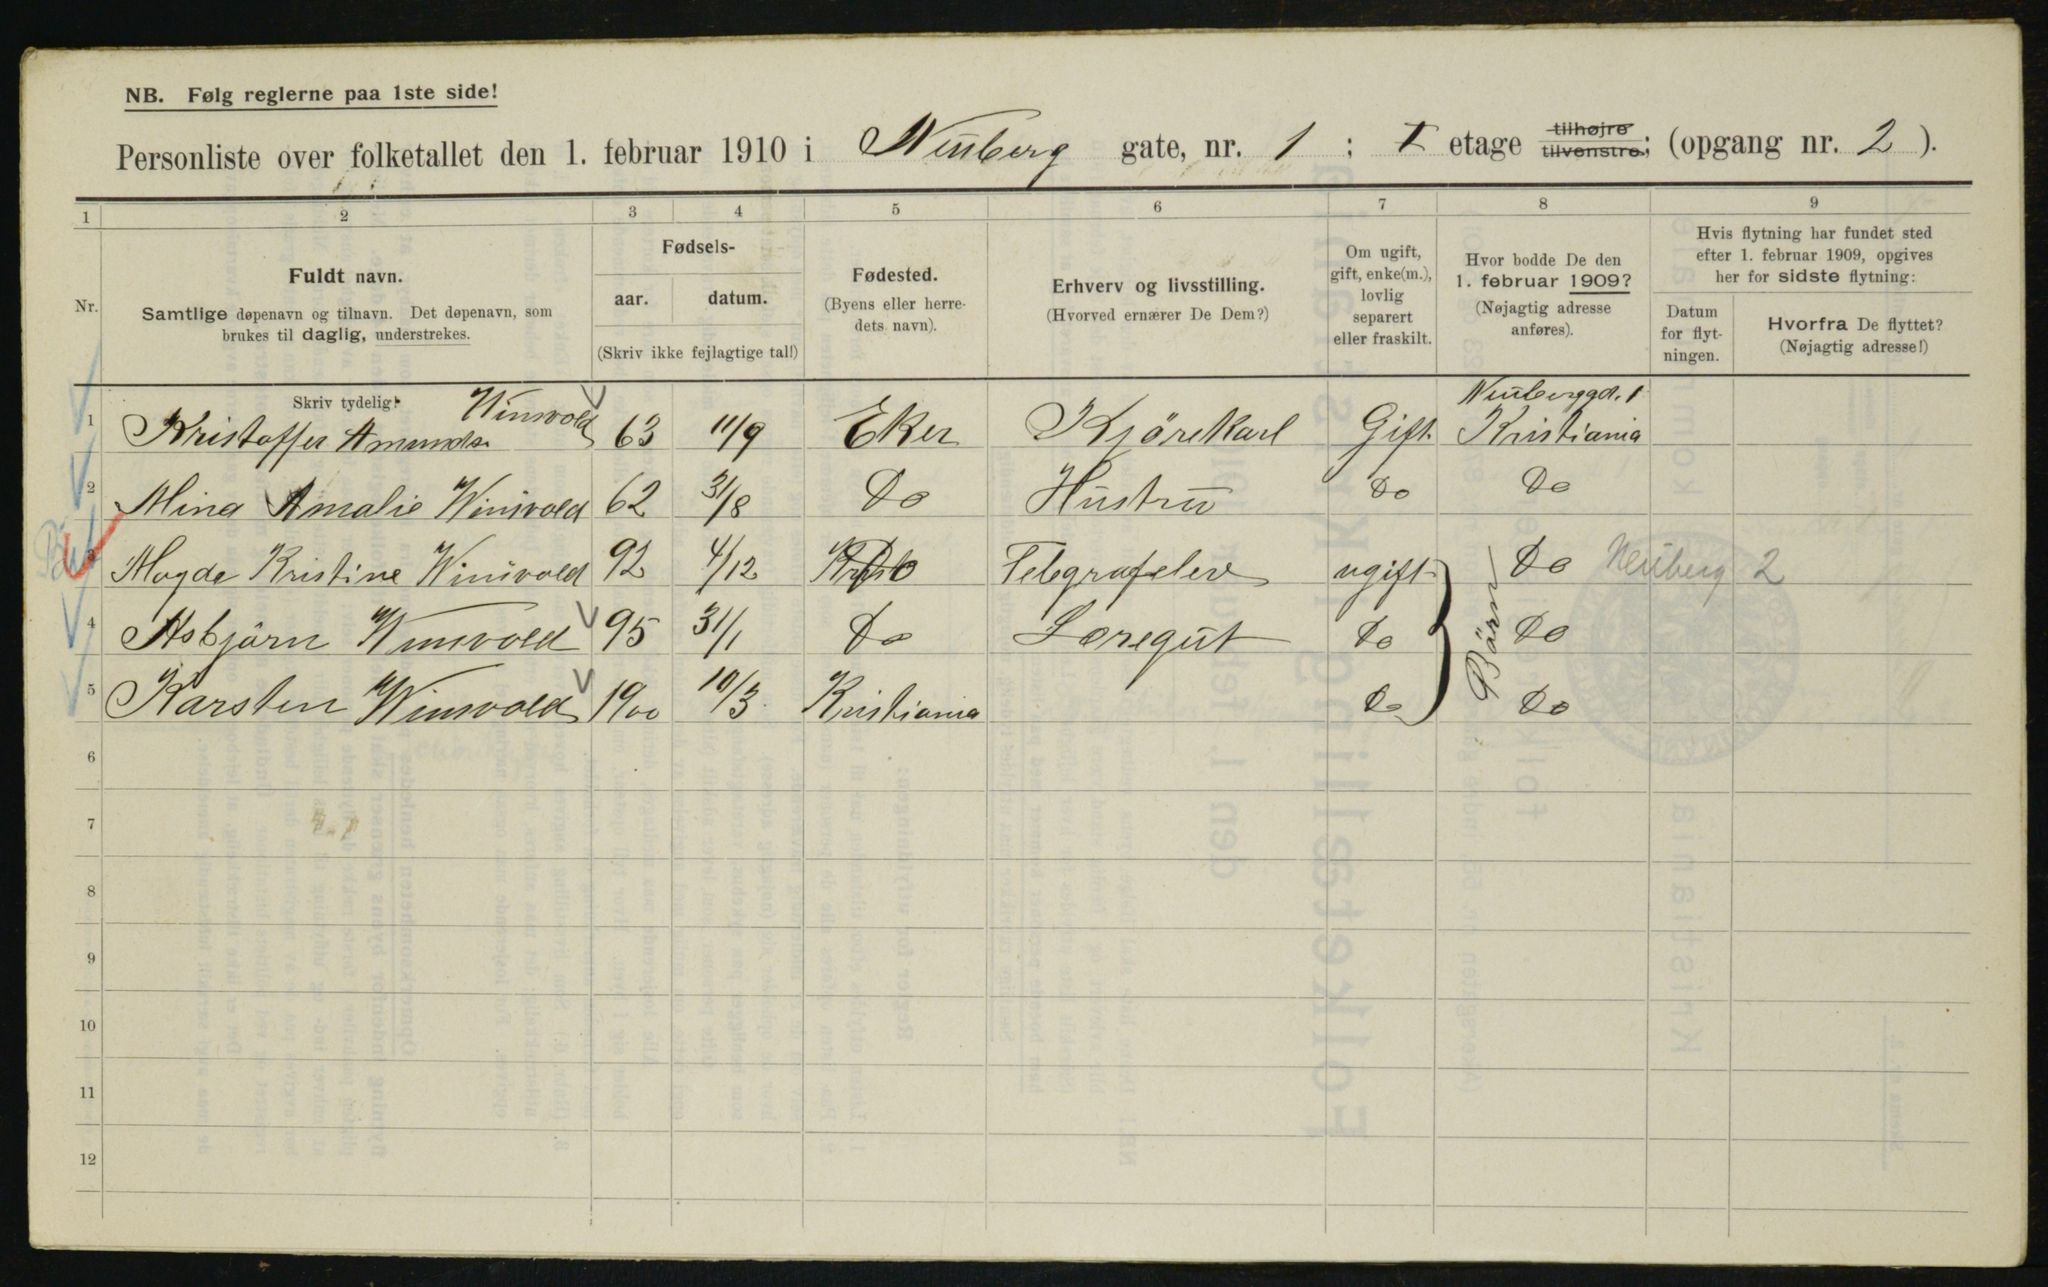 NB. Følg reglerne paa 1ste side!
Personliste over folketallet den 1. februar 1910 i Neuberg gate, nr. 1 ; I etage tilhøjre tilvenstre; (opgang nr. 2 ).
1 2 3 4 5 6 7 8 9
Nr.
Fuldt navn.
Samtlige døpenavn og tilnavn. Det døpenavn, som
brukes til daglig, understrekes.
Fødsels-
aar. datum.
(Skriv ikke fejlagtige tal!)
Fødested.
(Byens eller herre-
dets navn).
Erhverv og livsstilling.
(Hvorved ernærer De Dem?)
Om ugift,
gift, enke(m.),
lovlig
separert
eller fraskilt.
Hvor bodde De den
1. februar 1909?
(Nøjagtig adresse
anføres).
Hvis flytning har fundet sted
efter 1. februar 1909, opgives
her for sidste flytning:
Datum
for flyt-
ningen.
Hvorfra De flyttet?
(Nøjagtig adresse!)
Skriv tydelig!
1 Kristoffer Amunds. Winsvold 63 11/9 Eker Kjörekarl Gift Neuberggd. 1 Kristiania
2 Mina Amalie Winsvold 62 31/8 Do Hustru Do Do
3 Magda Kristine Winsvold 92 4/12 Do Telegrafelev ugift Do Neuberg 2
4 Asbjörn Winsvold 95 31/1 Do Læregut Do Do
5 Karsten Winsvold 1900 10/3 Kristiania Do Do
Börn
6
7
8
9
10
11
12